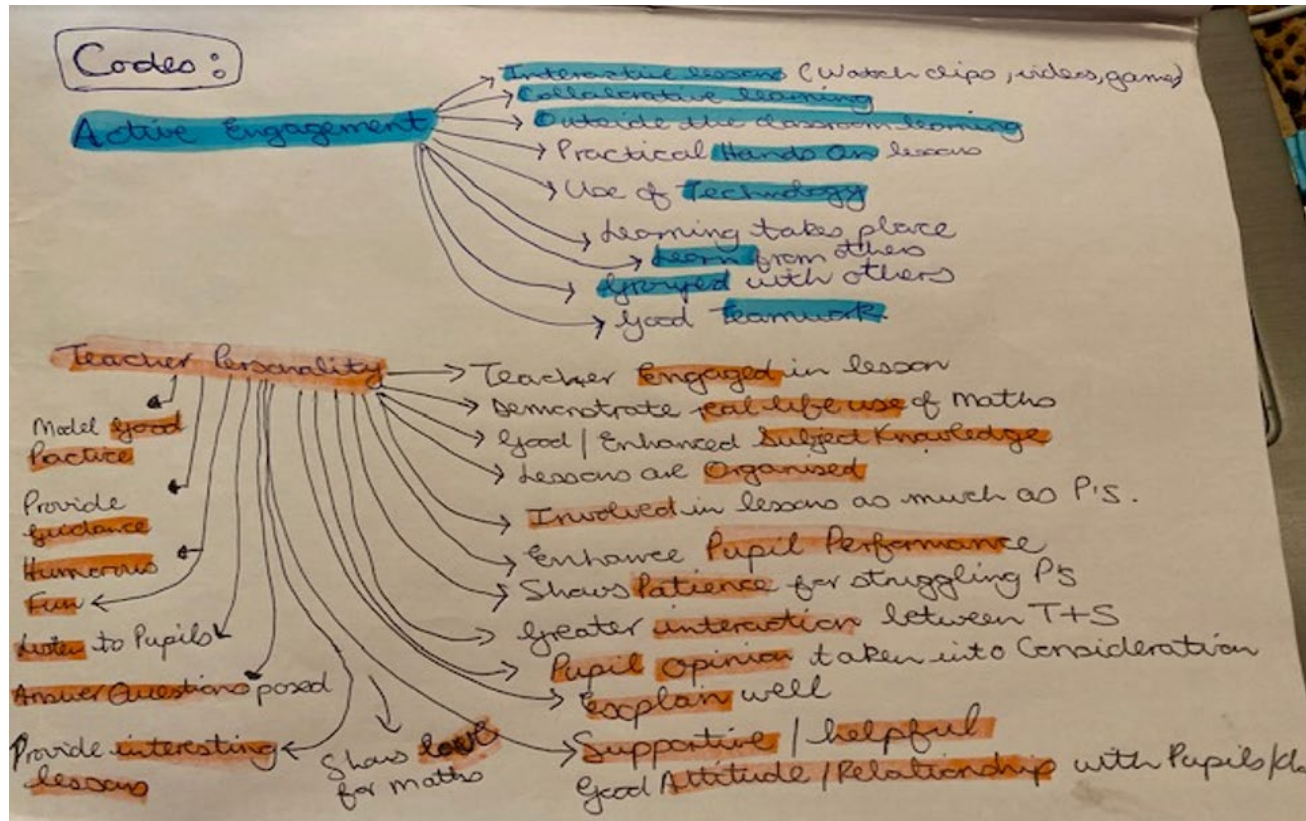 Codes:
Active Engagement
Interactive lessons (Watch clips, videos, games)
Collaborative learning
Outside the classroom learning
Practical Hands On lessons
Use of Technology
Learning takes place
Learn from others
Grouped with others
Good Teamwork
Teacher Personality
Teacher Engaged in lesson
Demonstrate real life use of maths
Good / Enhanced Subject Knowledge
Lessons are Organised
Involved in lessons as much as P's.
Enhance Pupil Performance
Shows Patience for struggling P's
Greater interaction between T+S
Pupil Opinion taken into Consideration
Explain well
Supportive / helpful
Good Attitude / Relationship with Pupils/
Model Good
Practice
Provide
Guidance
Humorous
Fun
Listen to Pupils
Answer Questions posed
Provide interesting
lessons
Shows love
for maths